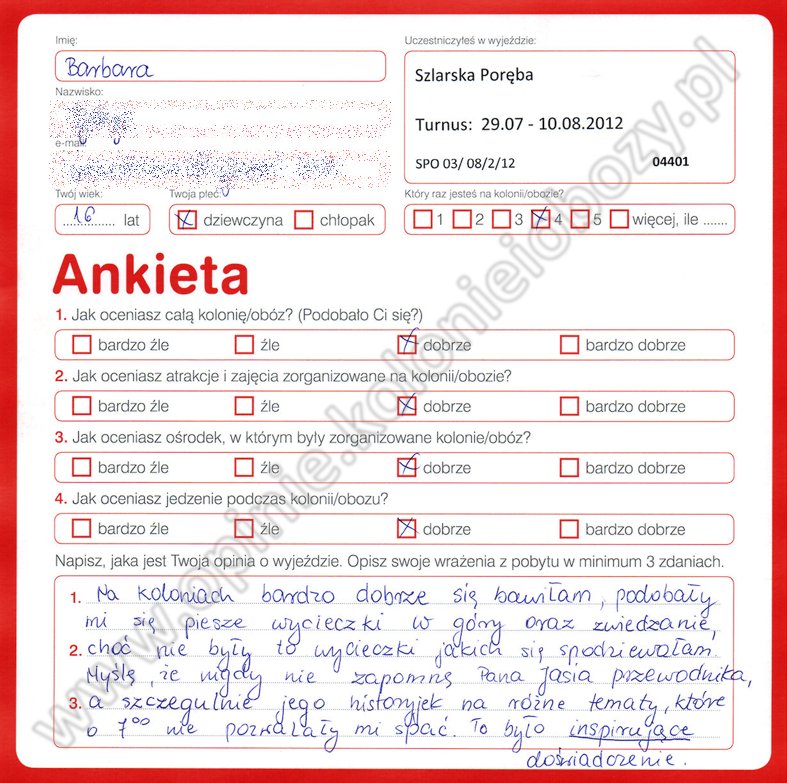 Imię:
Barbara
Uczestniczyłeś w wyjeździe:
Szlarska Poręba
Turnus: 29.07 - 10.08.2012
SPO 03/ 08/2/12 04401
Nazwisko:
e-mail
Twój wiek:
16 lat
Twoja płeć:
dziewczyna chłopak
Który raz jesteś na kolonii/obozie?
1 2 3 4 5 więcej, ile .......
Ankieta
1. Jak oceniasz całą kolonię/obóz? (Podobało Ci się?)
bardzo źle źle dobrze bardzo dobrze
2. Jak oceniasz atrakcje i zajęcia zorganizowane na kolonii/obozie?
bardzo źle źle dobrze bardzo dobrze
3. Jak oceniasz ośrodek, w którym były zorganizowane kolonie/obóz?
bardzo źle źle dobrze bardzo dobrze
4. Jak oceniasz jedzenie podczas kolonii/obozu?
bardzo źle źle dobrze bardzo dobrze
Napisz, jaka jest Twoja opinia o wyjeździe. Opisz swoje wrażenia z pobytu w minimum 3 zdaniach.
1. Na koloniach bardzo dobrze się bawiłam, podobały
mi się piesze wycieczki w góry oraz zwiedzanie,
2. choć nie były to wycieczki jakich się spodziewałam.
Myślę, że nigdy nie zapomnę Pana Jasia przewodnika,
3. a szczegulnie jego historyjek na różne tematy, które
o 7⁰⁰ nie pozwalały mi spać. To było inspirujące
doświadczenie.
www.opinie.kolonieiobozy.pl